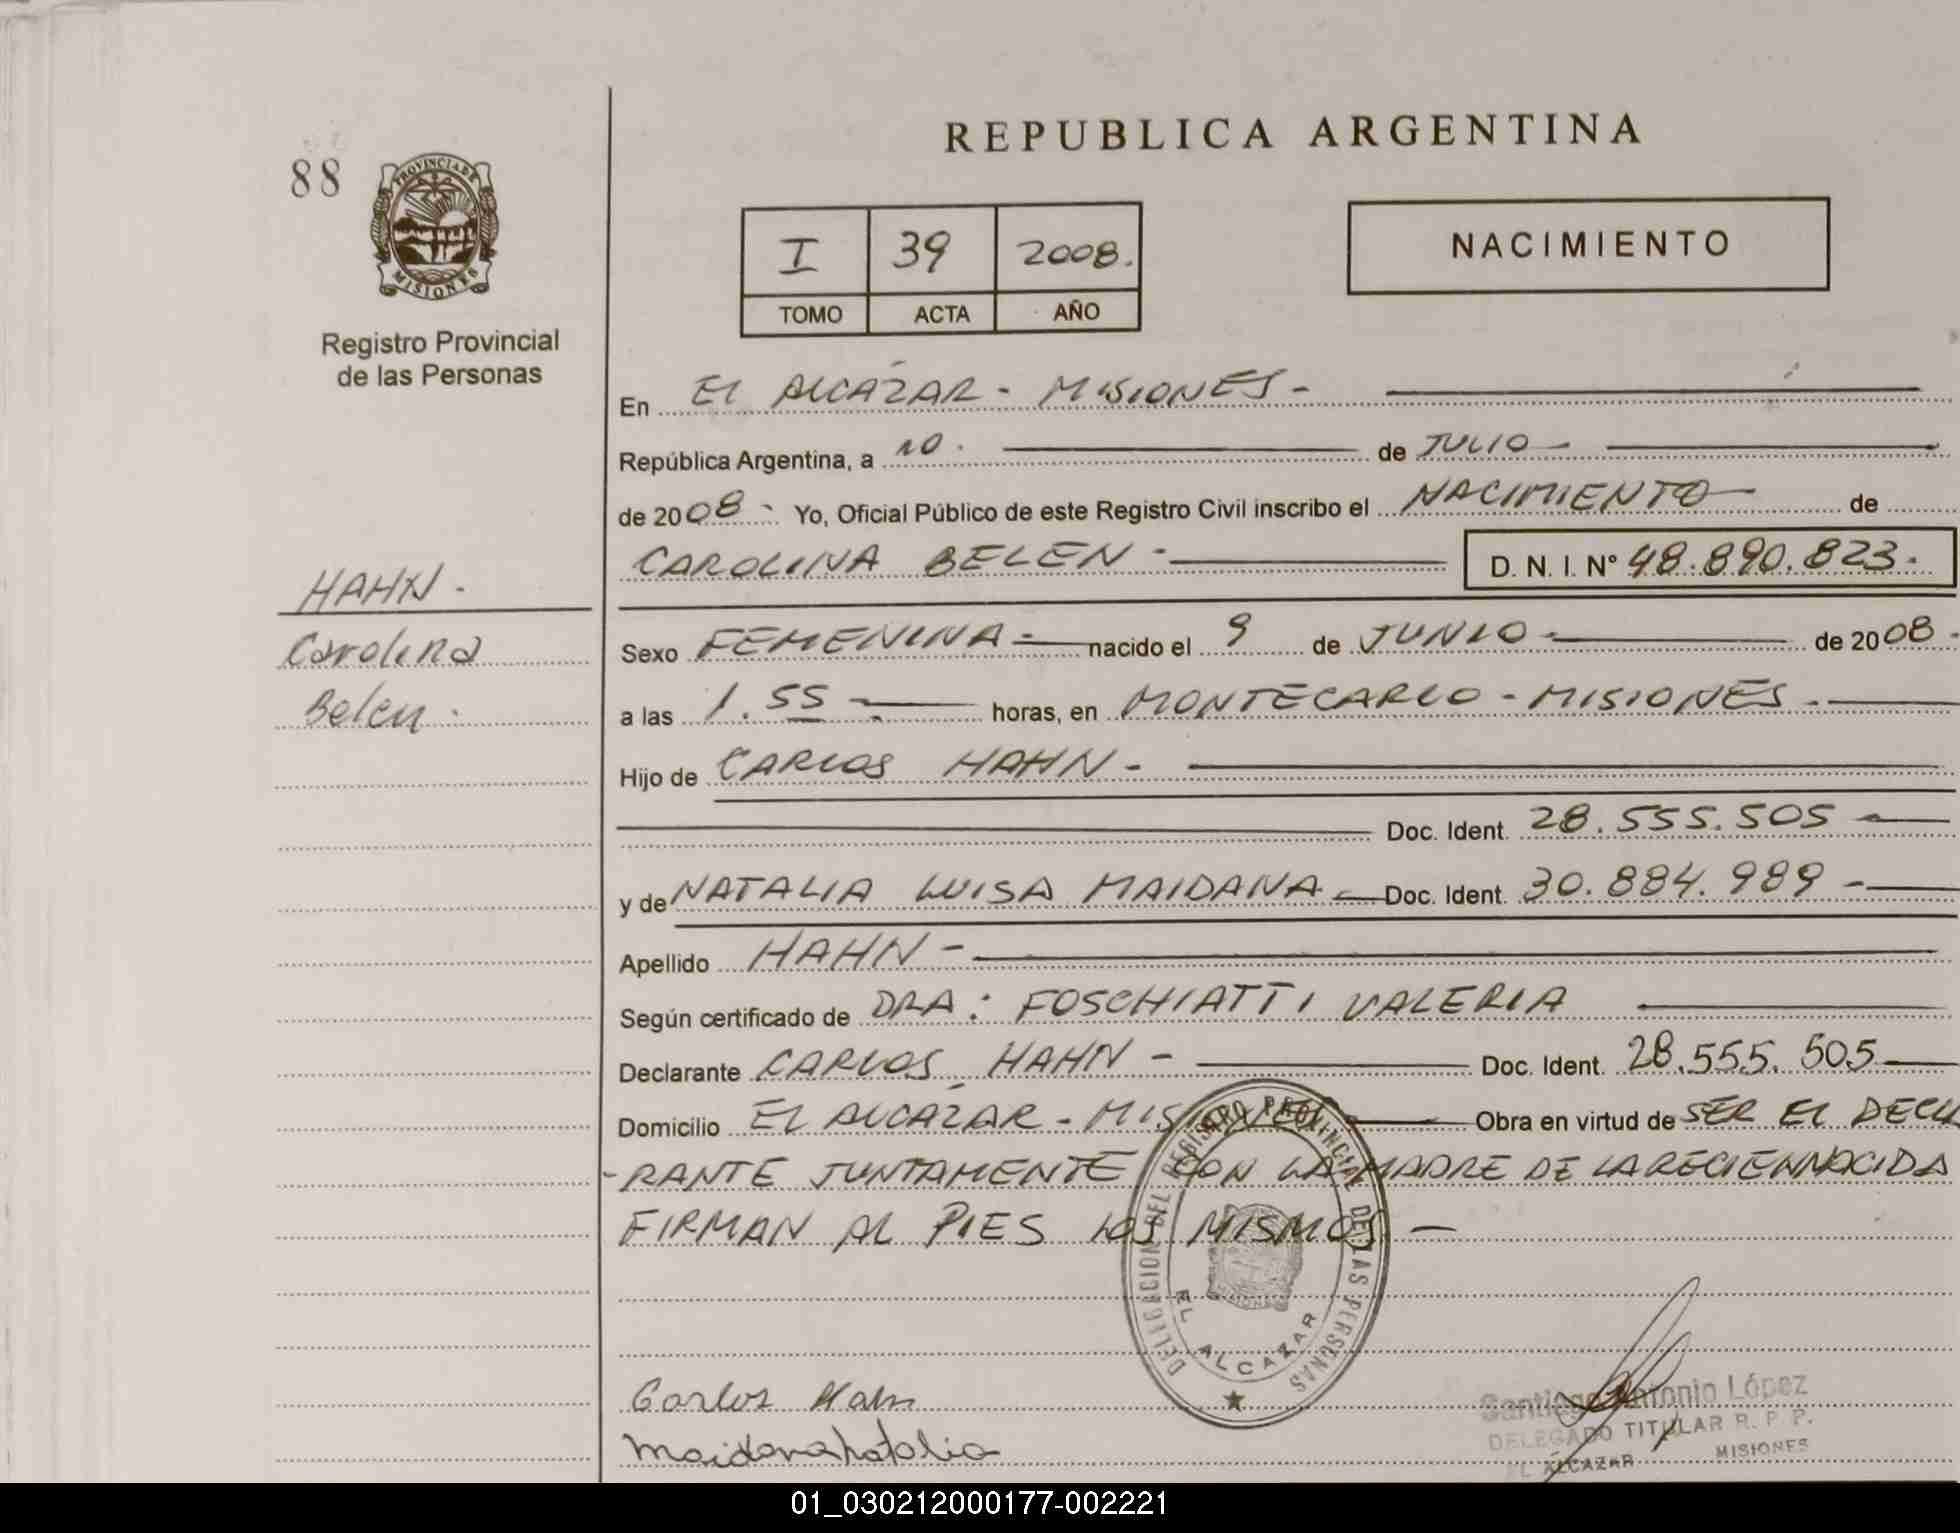 REPUBLICA ARGENTINA
88
PROVINCIA DE
MISIONES
Registro Provincial
de las Personas
I 39 2008.
TOMO ACTA AÑO
NACIMIENTO
En EL ALCAZAR - MISIONES -
República Argentina, a 10. de JULIO -
de 2008 - Yo, Oficial Público de este Registro Civil inscribo el NACIMIENTO de
CAROLINA BELEN - D. N. I. N° 48.890.823.
HAHN -
Carolina
Belen -
Sexo FEMENINA - nacido el 9 de JUNIO - de 2008 -
a las 1.55 - horas, en MONTECARLO - MISIONES -
Hijo de CARLOS HAHN -
Doc. Ident. 28.555.505 -
y de NATALIA LUISA MAIDANA - Doc. Ident. 30.884.989 -
Apellido HAHN -
Según certificado de DRA: FOSCHIATTI VALERIA
Declarante CARLOS HAHN - Doc. Ident. 28.555.505
Domicilio EL ALCAZAR - MISIONES - Obra en virtud de SER EL DECLA
-RANTE JUNTAMENTE CON LA MADRE DE LA RECIENNACIDA
FIRMAN AL PIES LOS MISMOS -
DELEGACION DEL REGISTRO PROVINCIAL DE LAS PERSONAS
EL ALCAZAR
Carlos Hahn
Maidana Natalia
Santiago Antonio López
DELEGADO TITULAR R. P. P.
EL ALCAZAR MISIONES
01_030212000177-002221